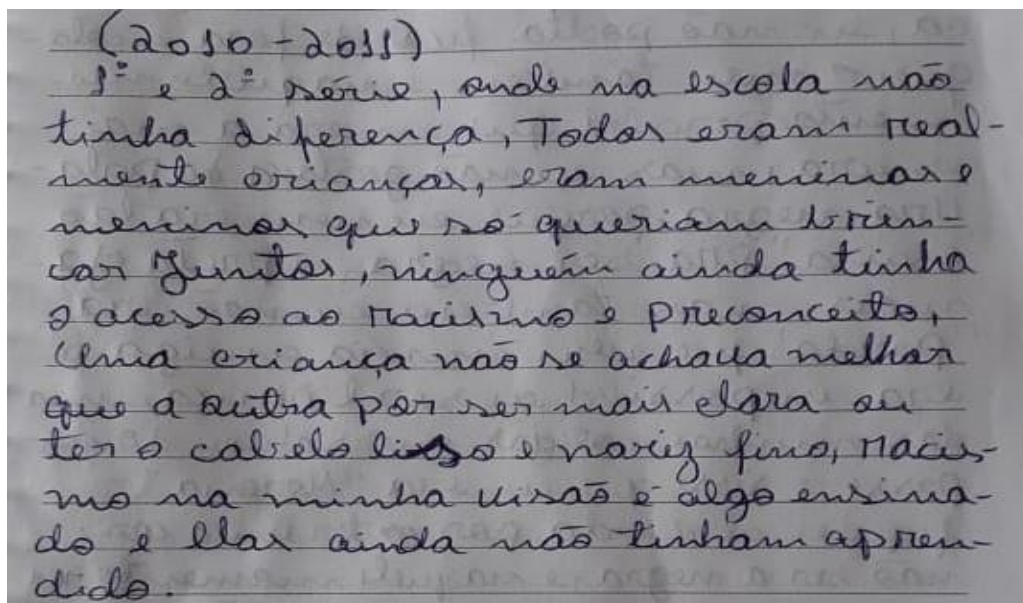 (2010-2011)
1º e 2º série, onde na escola não
tinha diferença, Todos eram real-
mente crianças, eram meninas e
meninos que só queriam brin-
car Juntos, ninguém ainda tinha
o acesso ao racismo e preconceito,
Uma criança não se achava melhor
que a outra por ser mais clara ou
ter o cabelo liso e nariz fino, racis-
mo na minha visão é algo ensina-
do e elas ainda não tinham apren-
dido.